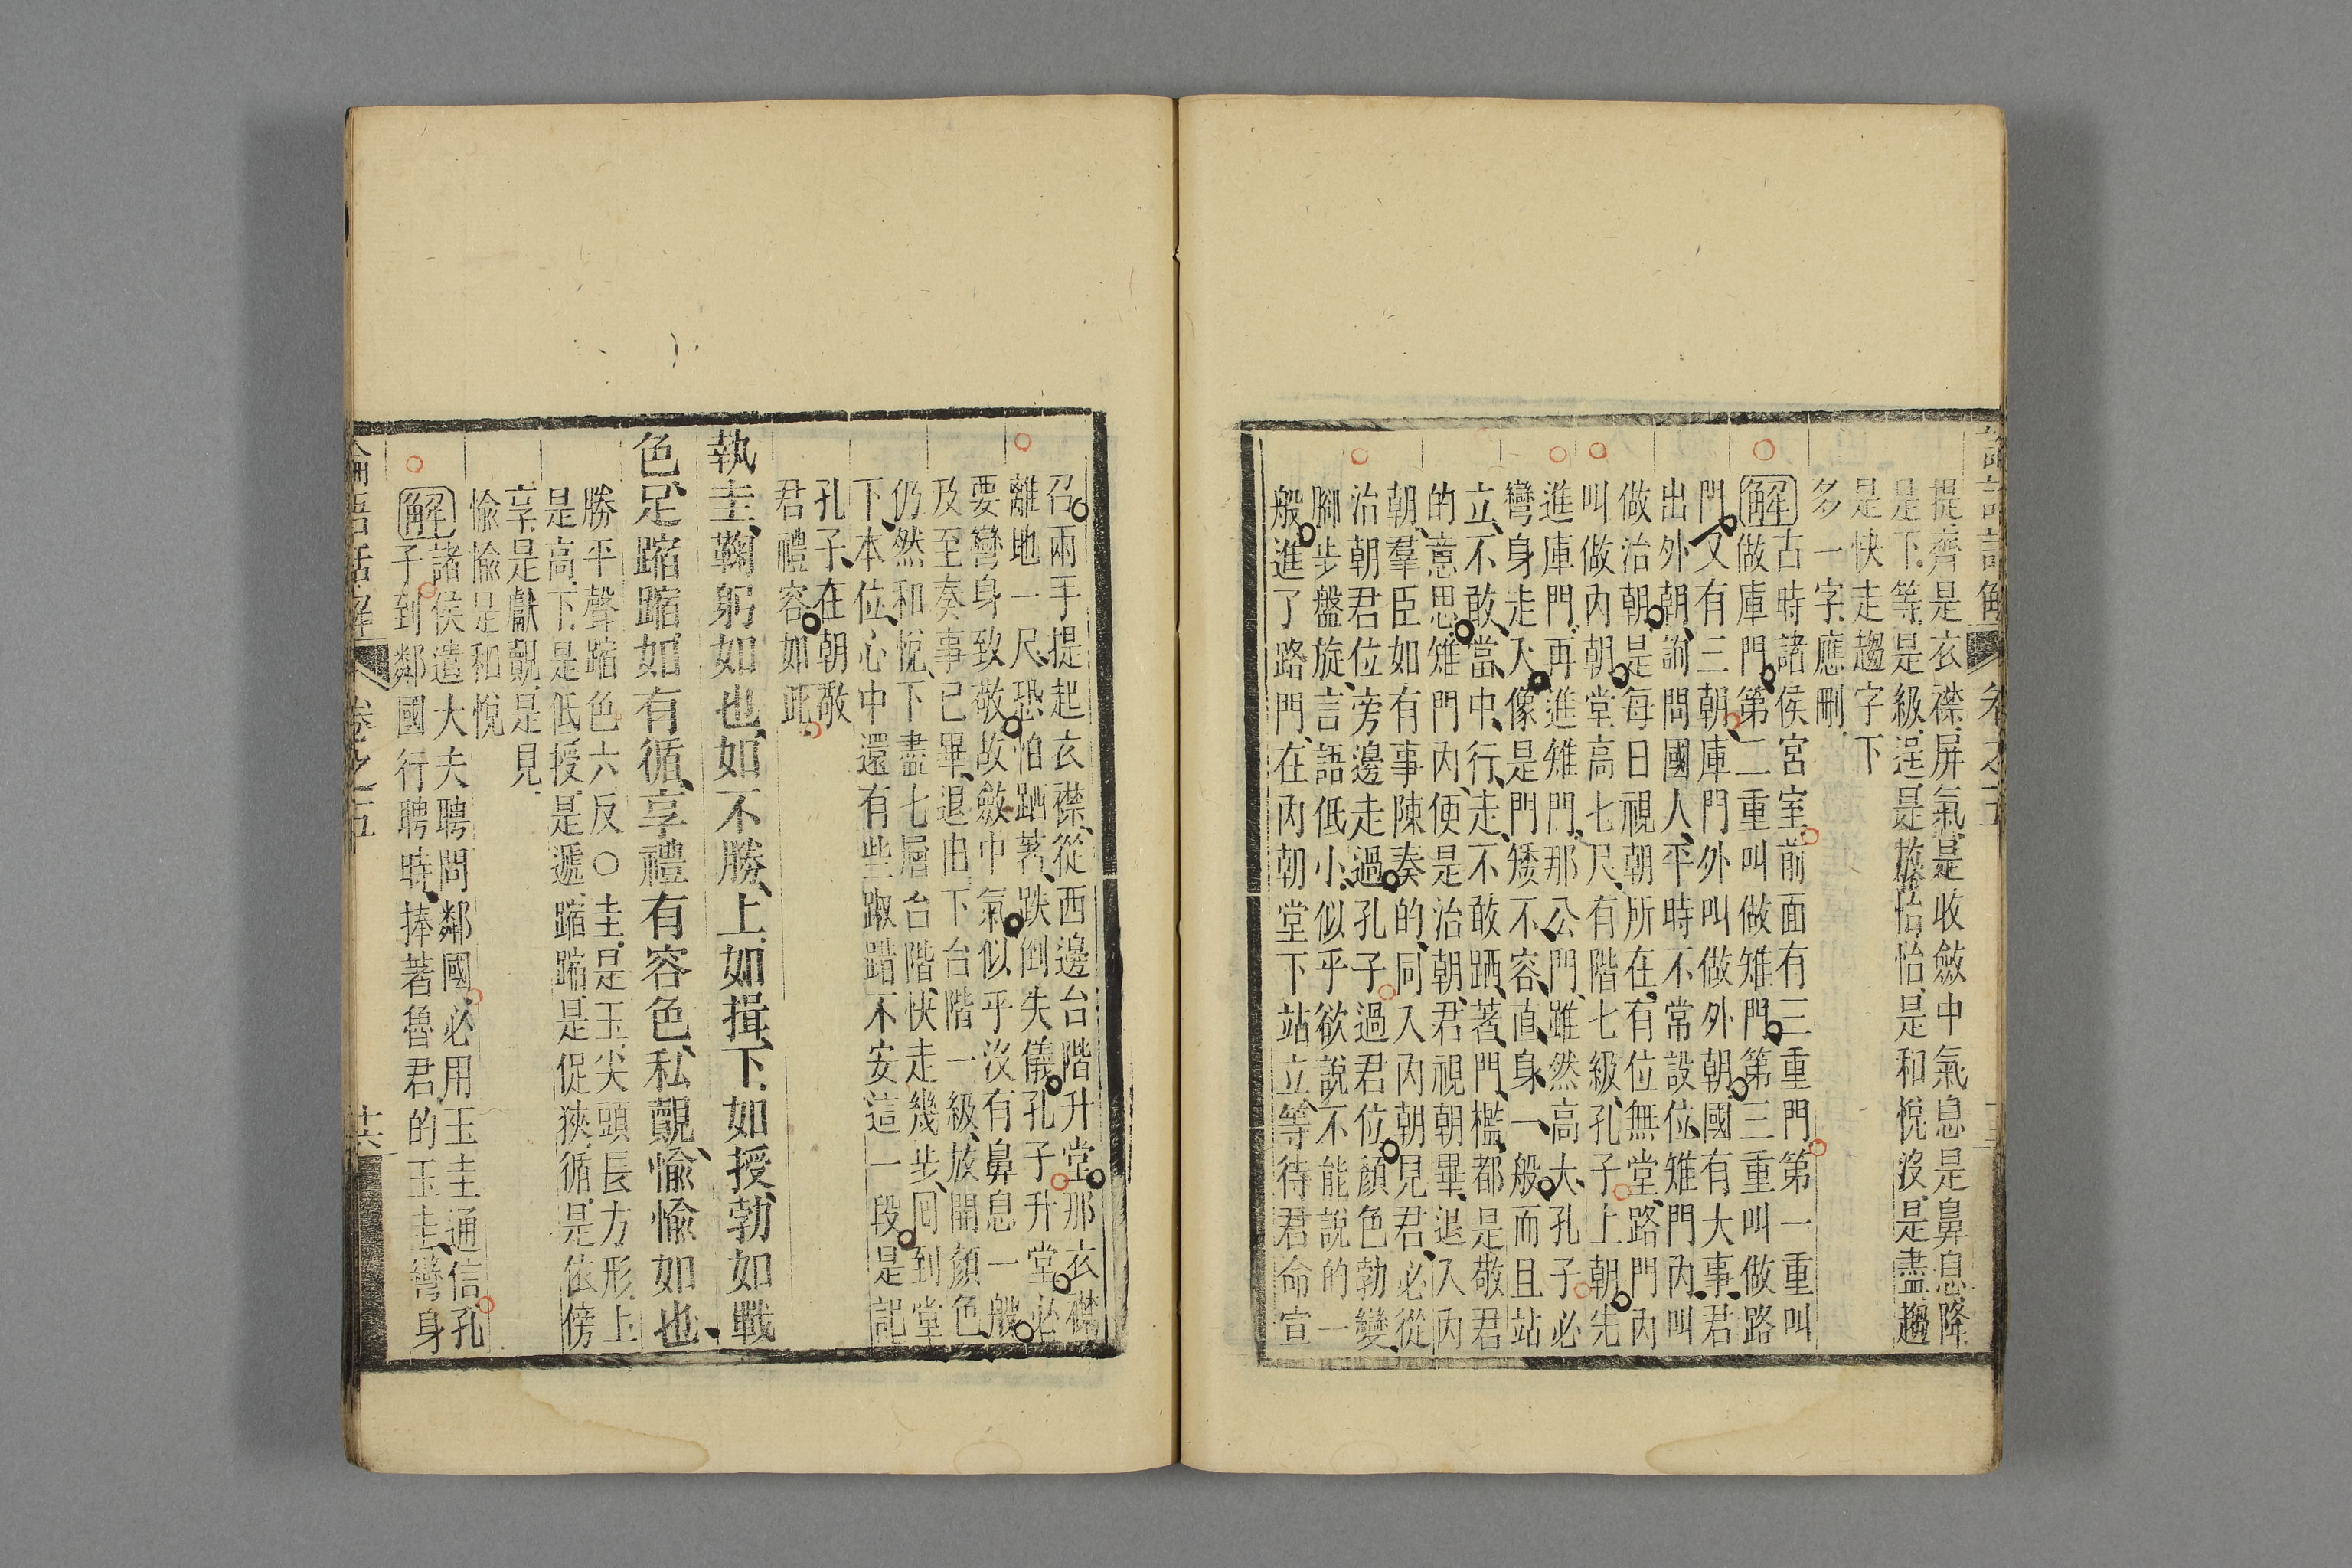 提齊是衣襟屏氣是收斂中氣息是鼻息降
是下等是級逞是放怡怡是和悅沒是盡趨
是快走趨字下
多一字應刪
解
古時諸侯宮室前面有三重門第一重叫
做庫門第二重叫做雉門第三重叫做路
門又有三朝庫門外叫做外朝國有大事君
出外朝詢問國人平時不常設位雉門內叫
做治朝是每日視朝所在有位無堂路門內
叫做內朝堂高七尺有階七級孔子上朝先
進庫門再進雉門那公門雖然高大孔子必
彎身走入像是門矮不容直身一般而且站
立不敢當中行走不敢跴著門檻都是敬君
的意思雉門內便是治朝君視朝畢退入內
朝羣臣如有事陳奏的同入內朝見君必從
治朝君位旁邊走過孔子過君位顏色勃變
腳步盤旋言語低小似乎欲說不能說的一
般進了路門在內朝堂下站立等待君命宣
召兩手提起衣襟從西邊台階升堂那衣襟
離地一尺恐怕跴著跌倒失儀孔子升堂必
要彎身致敬故斂中氣似乎沒有鼻息一般
及至奏事已畢退由下台階一級放開顏色
仍然和悅下盡七層台階快走幾步回到堂
下本位心中還有些踧踖不安這一段是記
孔子在朝敬
君禮容如此
執圭鞠躬如也如不勝上如揖下如授勃如戰
色足蹜蹜如有循享禮有容色私覿愉愉如也
勝平聲蹜色六反○圭是玉尖頭長方形上
是高下是低授是遞蹜蹜是促狹循是依傍
享是獻覿是見
愉愉是和悅
解
諸侯遣大夫聘問鄰國必用玉圭通信孔
子到鄰國行聘時捧著魯君的玉圭彎身
論語話解
卷之五
十六